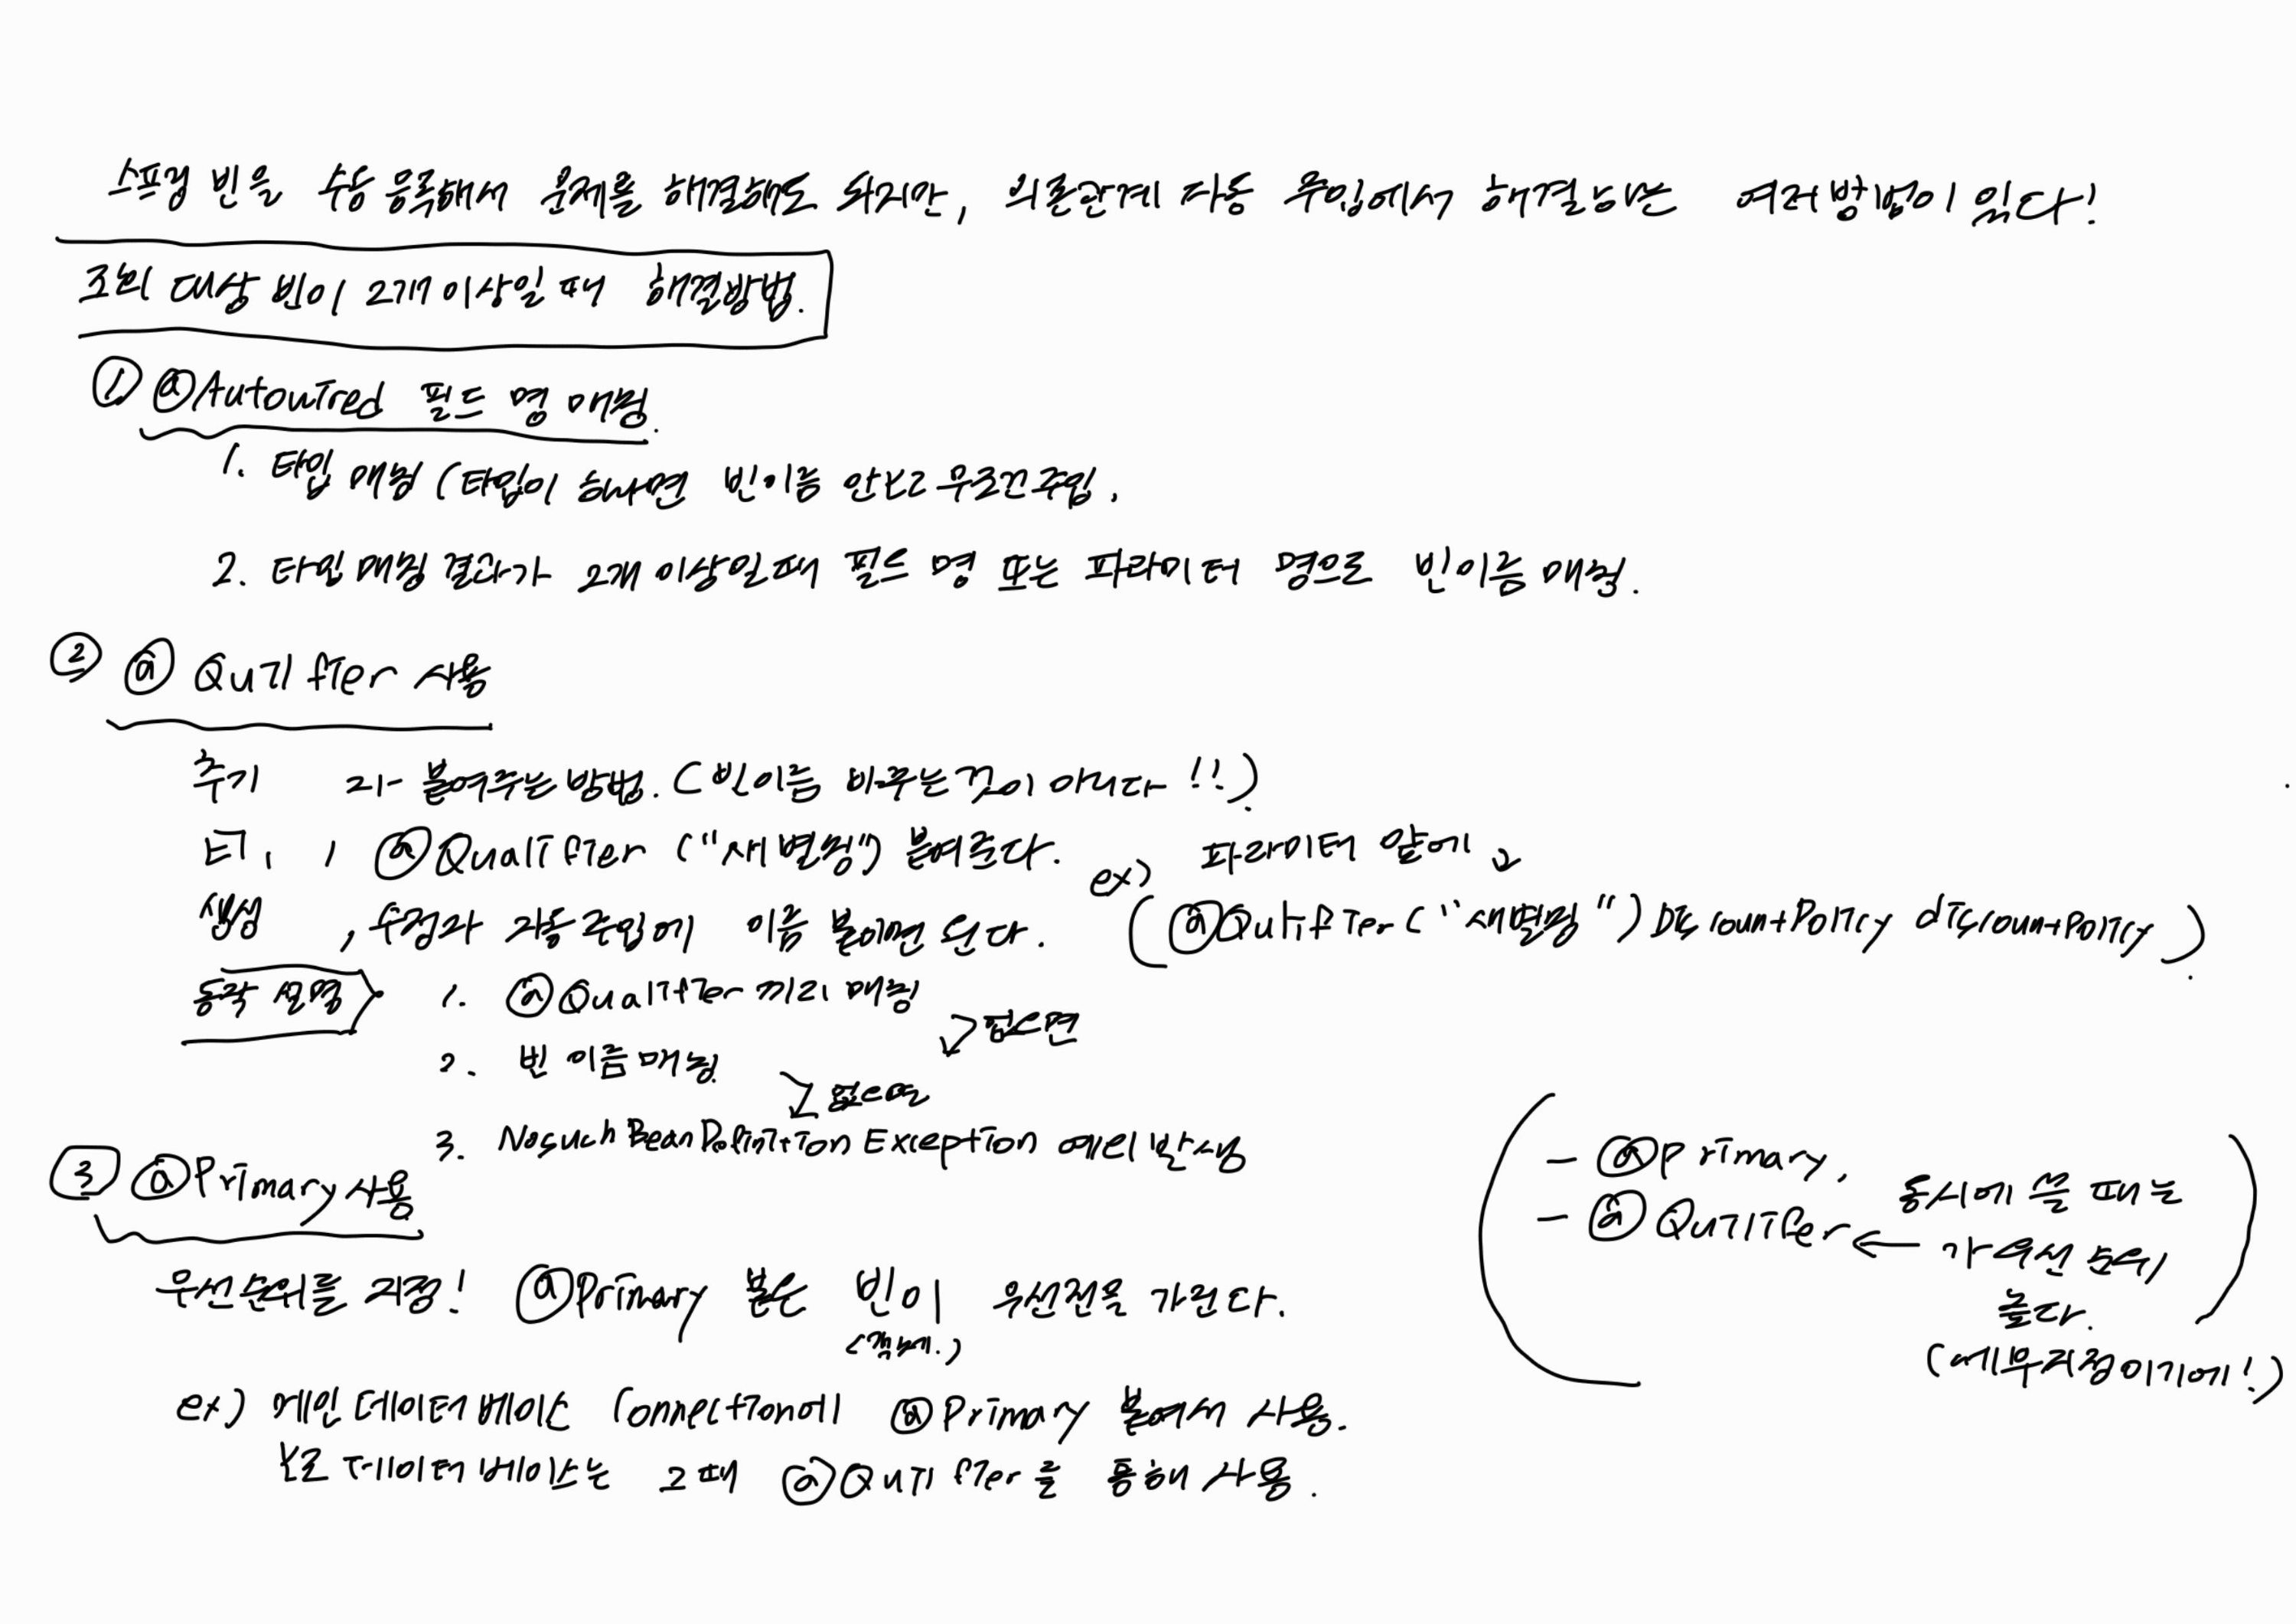 스프링 빈을 수동 등록해서 문제를 해결해도 되지만, 의존관계 자동 주입에서 해결하는 여러 방법이 있다!
조회 대상 빈이 2개 이상일 때 해결방법.
① @Autowired 필드 명 매칭.
1. 타입 매칭 (타입이 하나면 빈이름 안보고 무조건 주입.
2. 타입 매칭 결과가 2개 이상일때 필드 명 또는 파라미터 명으로 빈이름 매칭.
② @Qulifier 사용
추가 자 붙여주는 방법. (빈이름 바꾸는 것이 아니다!!)
@Qualifier ("새별칭") 붙여준다.
ex) 파라미터 앞에
생성 , 수정자 자동주입에 이름 붙이면 된다.
(@Qulifier ("새별칭") DiscountPolicy discountPolicy)
동작 설명 1. @Qualifier끼리 매칭
없으면
2. 빈 이름 매칭
없으면
3. NosuchBeanDefinitionException 에러 발생
③ @Primary 사용
우선순위를 지정! @Primary 붙은 빈이 우선권을 가진다.
ex) 메인 데이터 베이스 Connection에 @Primary 붙여서 사용.
보조 데이터 베이스는 그때 @Qulifier를 통해 사용.
- @Primary.
- @Qulifier ← 동시에 쓸 때는
가 우선 순위
높다.
(세부지정이기에!)